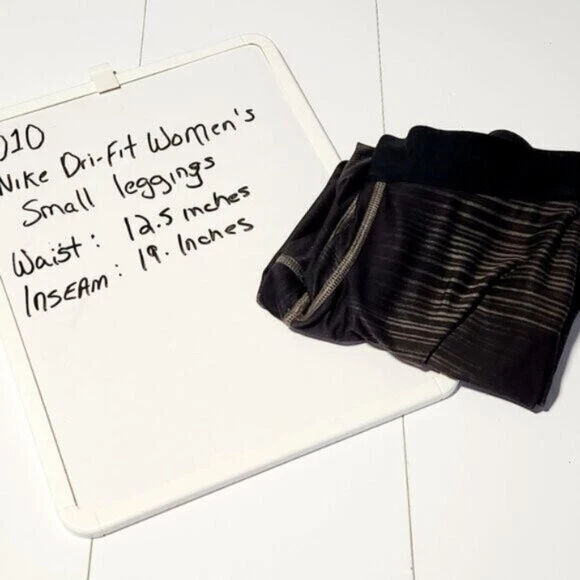 010
Nike Dri-Fit Women's
Small leggings
Waist: 12.5 inches
Inseam: 19. Inches